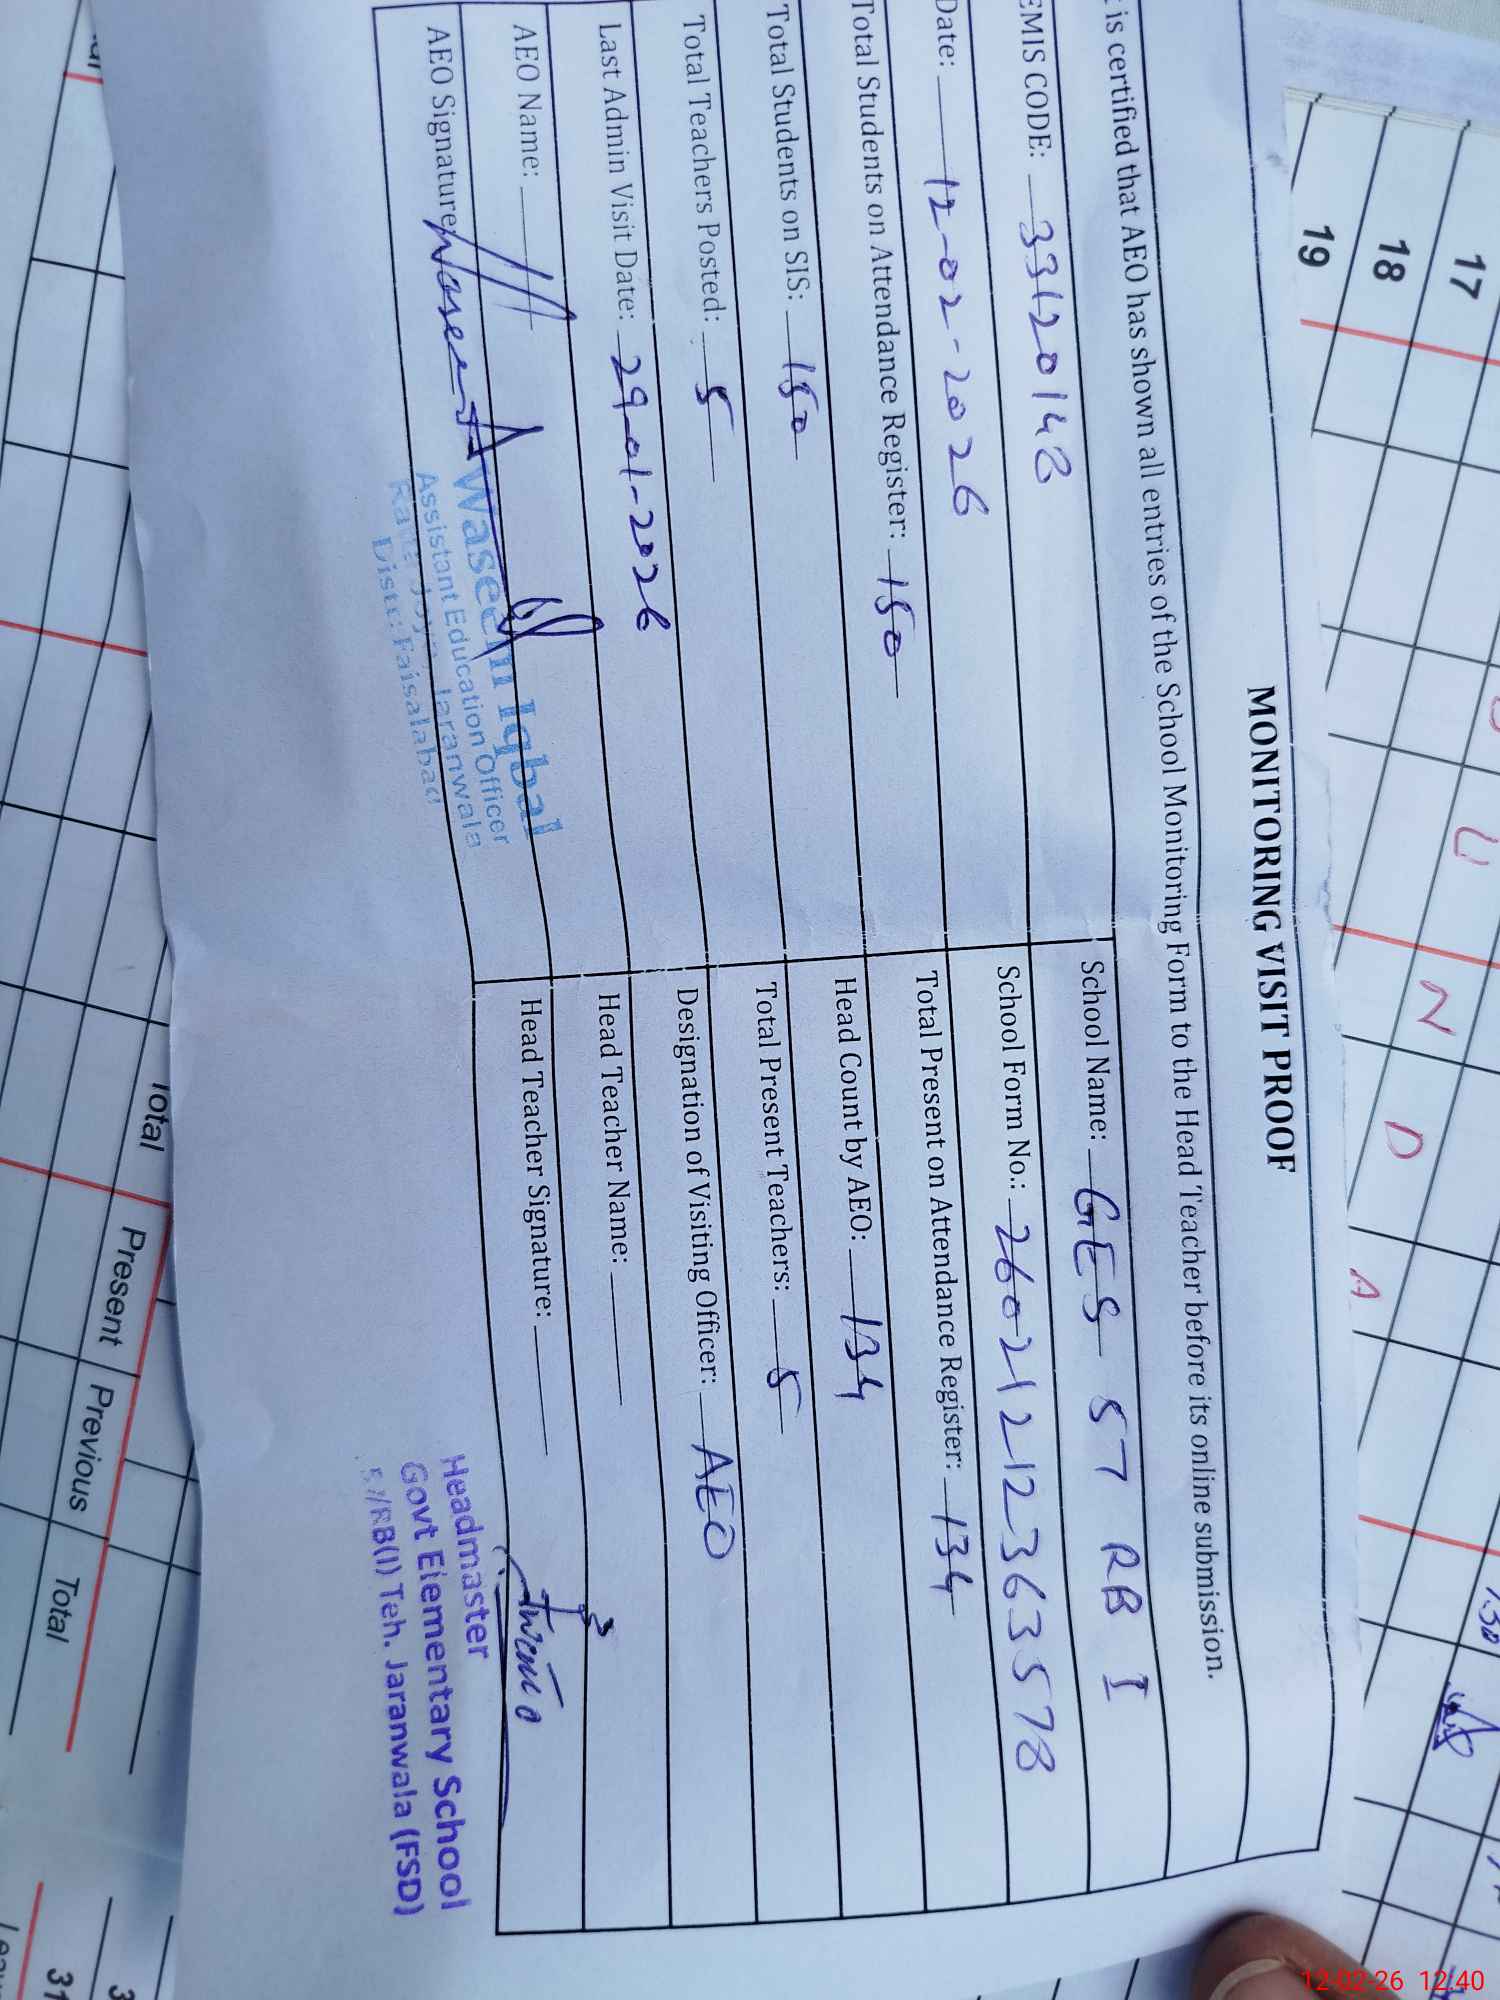 MONITORING VISIT PROOF
is certified that AEO has shown all entries of the School Monitoring Form to the Head Teacher before its online submission.
EMIS CODE: 33120148
School Name: GES 57 RB I
Date: 12-02-2026
School Form No.: 26021212363578
Total Students on Attendance Register: 150
Total Present on Attendance Register: 134
Total Students on SIS: 150
Head Count by AEO: 134
Total Teachers Posted: 5
Total Present Teachers: 5
Last Admin Visit Date: 29-01-2026
Designation of Visiting Officer: AEO
AEO Name:
Head Teacher Name:
AEO Signature:
Head Teacher Signature:
Waseem Iqbal
Assistant Education Officer
Jaranwala
Distt: Faisalabad
Headmaster
Govt Elementary School
57/RB(I) Teh. Jaranwala (FSD)
17
18
19
U
N
D
A
Total
Present
Previous
Total
31
12-02-26 12:40